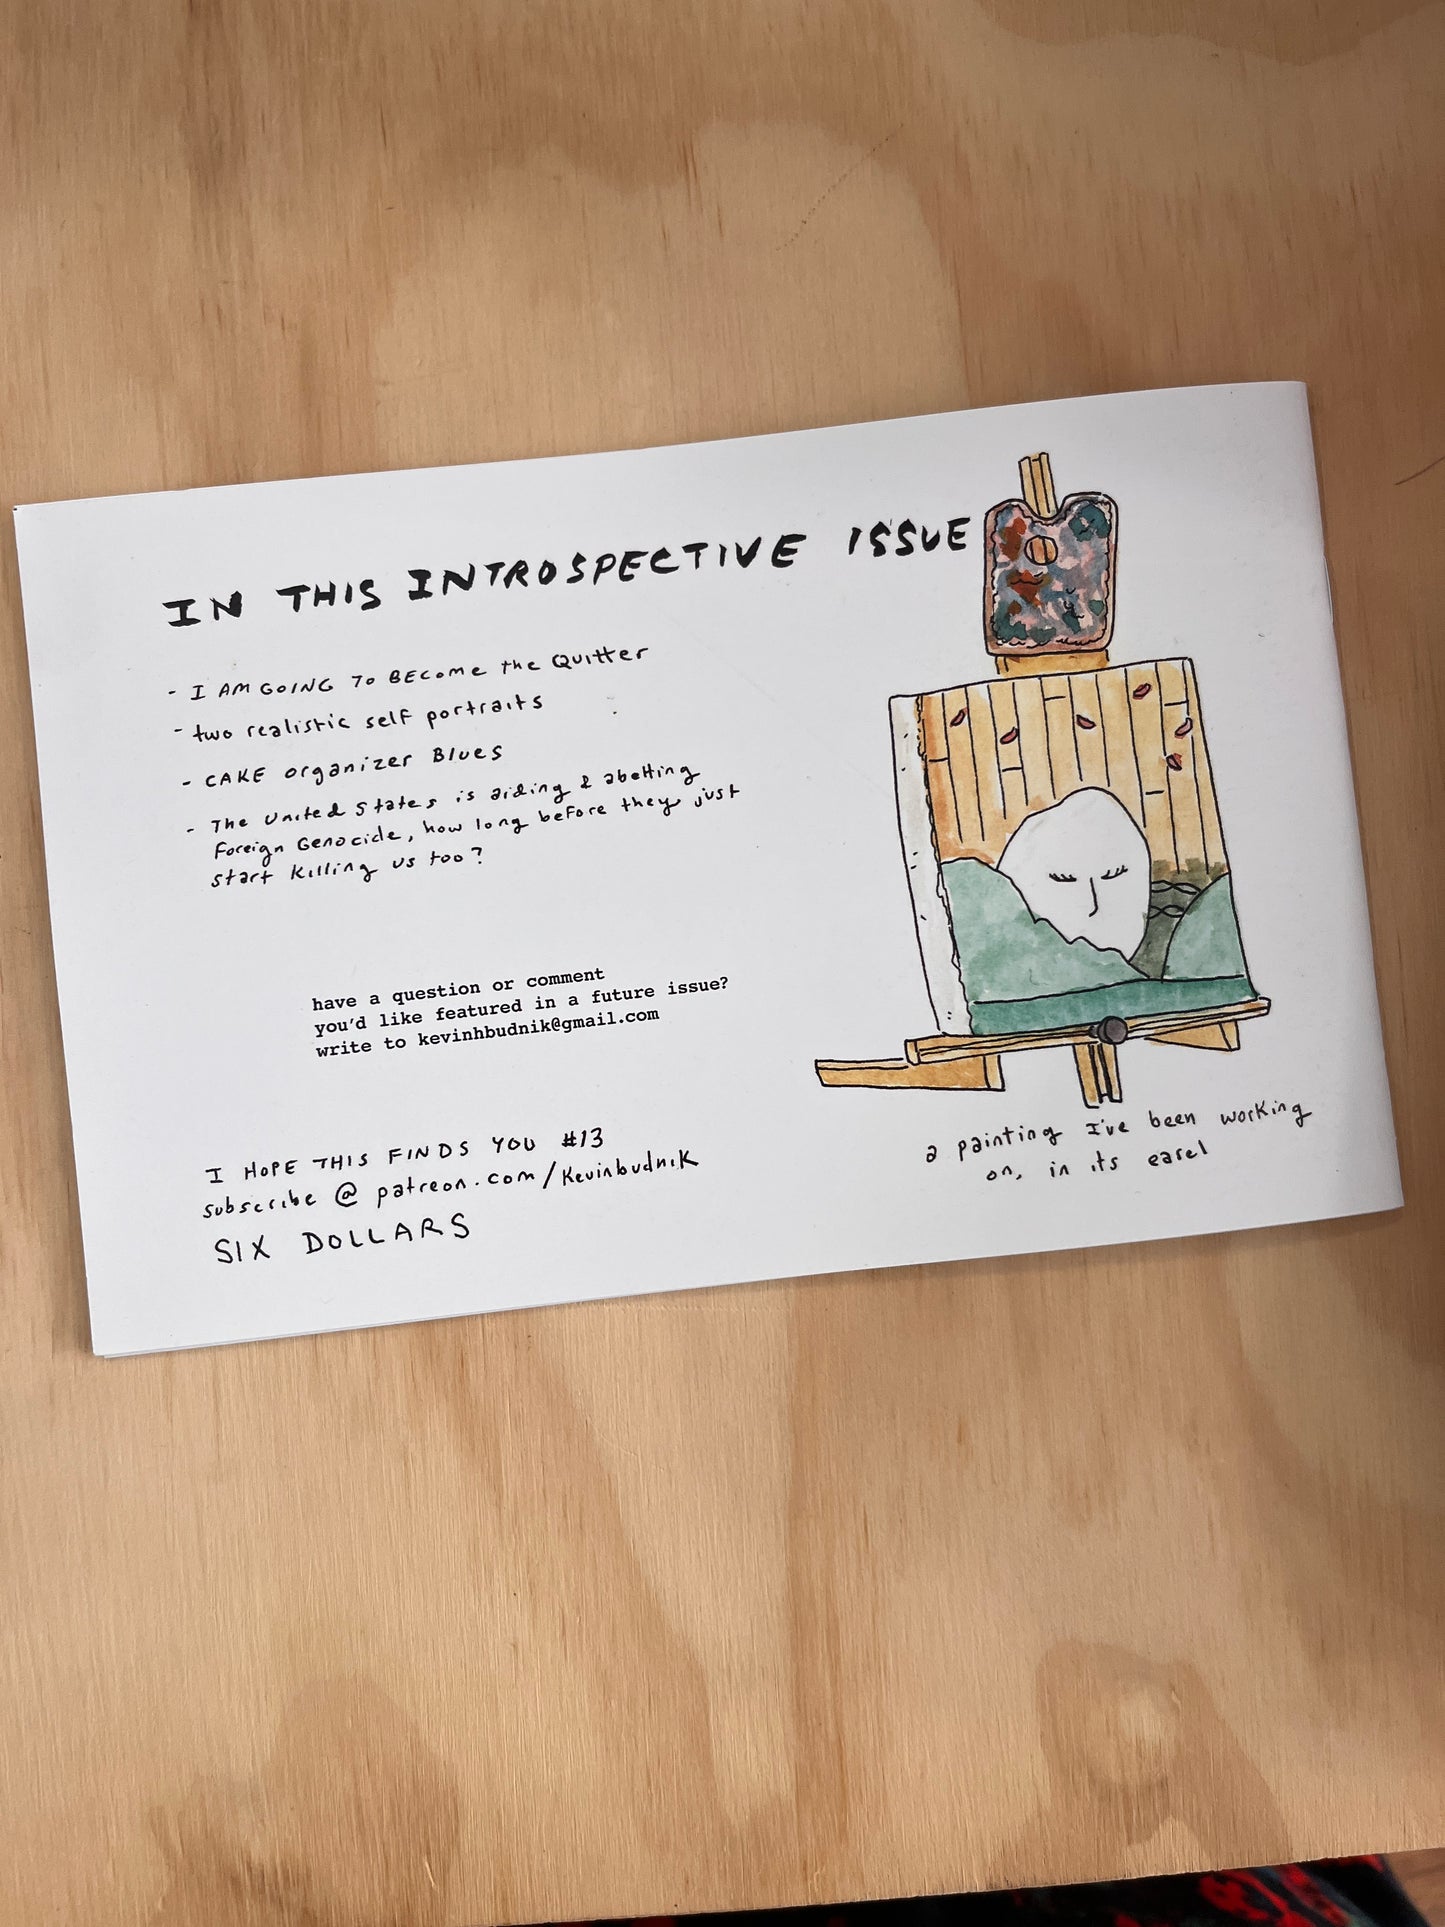 IN THIS INTROSPECTIVE ISSUE
- I AM GOING TO BECOME the Quitter
- two realistic self portraits
- CAKE organizer Blues
- The United States is aiding & abetting
Foreign Genocide, how long before they just
start killing us too?
have a question or comment
you'd like featured in a future issue?
write to kevinhbudnik@gmail.com
I HOPE THIS FINDS YOU #13
subscribe @ patreon.com/kevinbudnik
SIX DOLLARS
a painting I've been working
on, in its easel